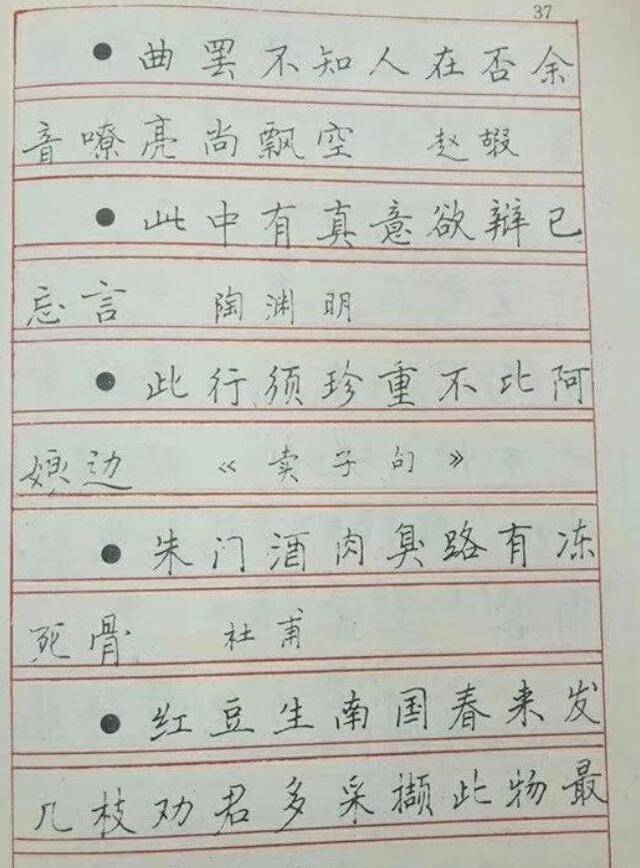 37
●曲罢不知人在否余
音嘹亮尚飘空 赵嘏
●此中有真意欲辩已
忘言 陶渊明
●此行须珍重不比阿
娘边 《卖子句》
●朱门酒肉臭路有冻
死骨 杜甫
●红豆生南国春来发
几枝劝君多采撷此物最